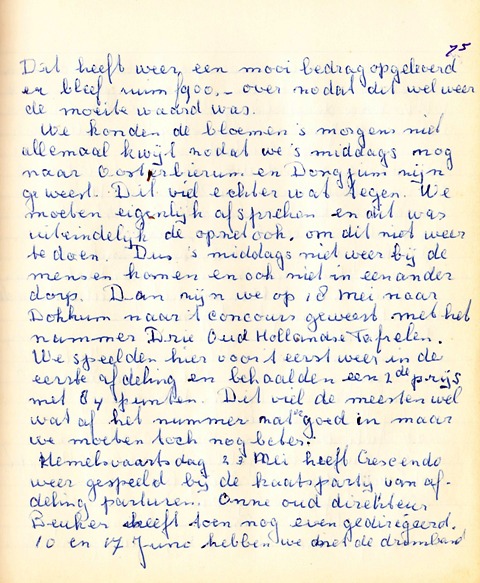 75
Dat heeft weer een mooi bedrag opgeleverd
er bleef ruim f900,- over zodat dit wel weer
de moeite waard was.
We konden de bloemen 's morgens niet
allemaal kwijt zodat we 's middags nog
naar Oosterbierum en Dongjum zijn
geweest. Dit viel echter wat tegen. We
moeten eigenlijk afspreken en dit was
uiteindelijk de opzet ook, om dit niet weer
te doen. Dus 's middags niet weer bij de
mensen komen en ook niet in een ander
dorp. Dan zijn we op 18 Mei naar
Dokkum naar 't concours geweest met het
nummer Drie Oud Hollandse Tafrelen.
We speelden hier voor 't eerst weer in de
eerste afdeling en behaalden een 2de prijs
met 84 punten. Dit viel de meesten wel
wat af het nummer zat er goed in maar
we moeten toch nog beter.
Hemelsvaartsdag 23 Mei heeft Crescendo
weer gespeeld bij de kaatspartij van af-
deling parturen. Onne oud direkteur
Beuker heeft toen nog even gedirigeerd.
10 en 17 Juno hebben we met de drumband